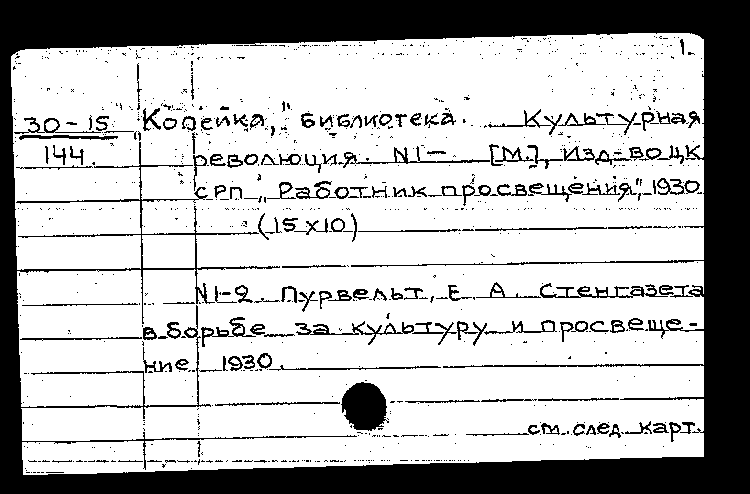 1.
30-15
144.
"Копейка," библиотека. Культурная
революция. N1- [М.], Изд-во ЦК
СРП "Работник просвещения", 1930
(15x10)
N1-2. Пурвельт, Е. А. Стенгазета
в борьбе за культуру и просвеще-
ние 1930.
см. след. карт.